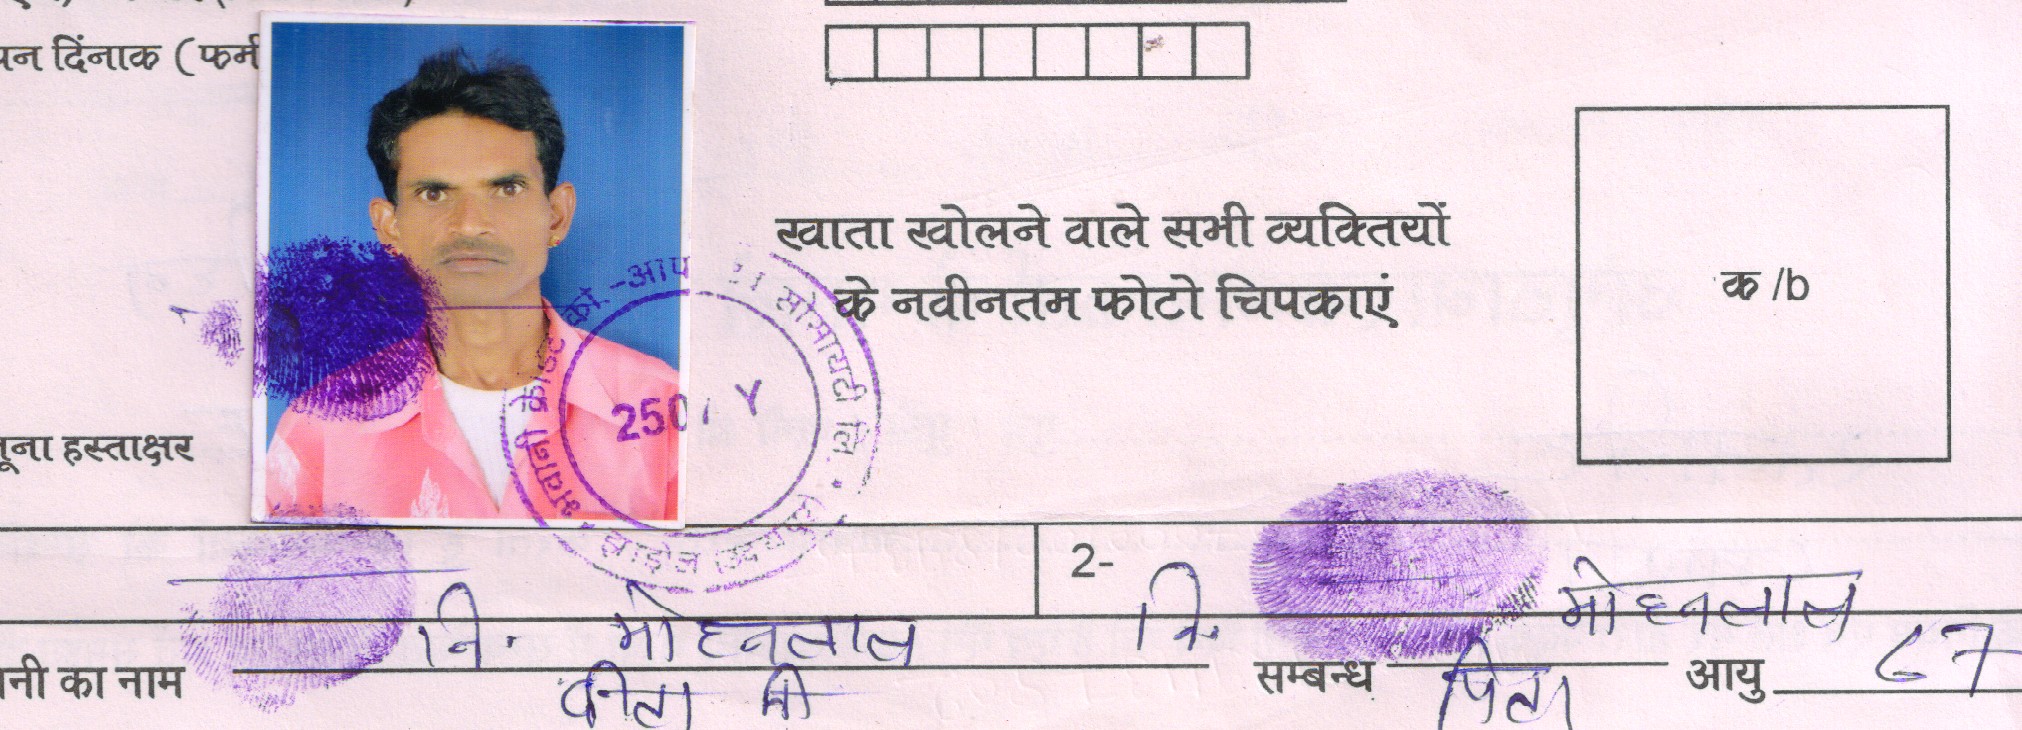 पन दिंनाक ( फर्म
खाता खोलने वाले सभी व्यक्तियों
के नवीनतम फोटो चिपकाएं
क /b
भवानी क्रेडिट को.-आप सोसायटी लि.
250
मूना हस्ताक्षर
2-
नि. मोहनलाल
नि. मोहनलाल
नी का नाम
सम्बन्ध पिता आयु 67